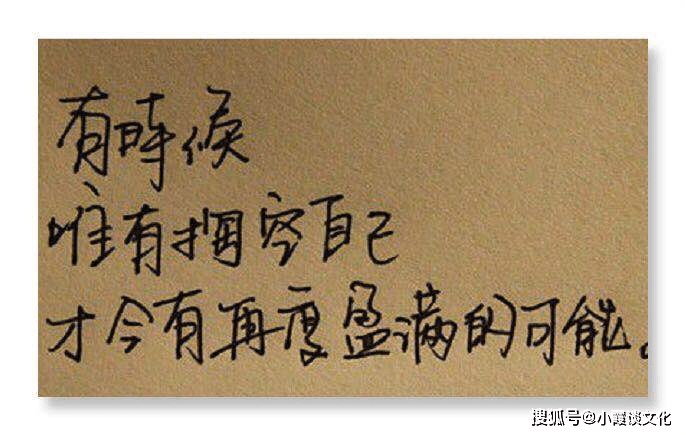 有時候
唯有掏空自己
才会有再度盈满的可能。
搜狐号@小霞谈文化